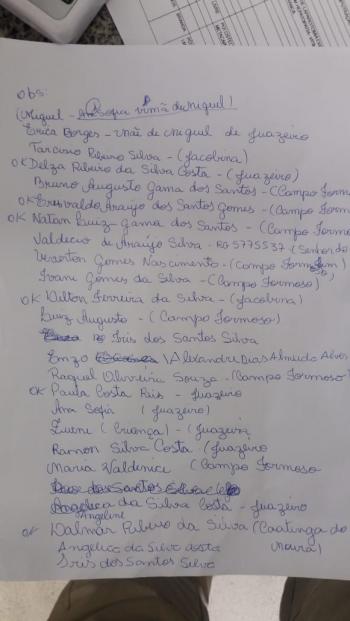 obs:
(Miguel - Ana Sofia irmã de Miguel!
Erica Borges - mãe de Miguel de Juazeiro
Tarcisio Ribeiro Silva - (Jacobina)
OK Delza Ribeiro da Silva Costa - (Juazeiro)
Bruno Augusto Gama dos Santos - (Campo Form
OK Erisvaldo Araújo dos Santos Gomes - (Campo Form
OK Natan Luiz Gama dos Santos - (Campo Form
Valdecio de Araújo Silva - RG 5775537 (Senhor do
Weverton Gomes Nascimento - (Campo Form
Ivani Gomes da Silva - (Campo Formoso)
OK Dilton Ferreira da Silva - (Jacobina)
Luiz Augusto - (Campo Formoso)
Iris dos Santos Silva
Enzo Alexandre Dias Almeida Alves
Raquel Oliveira Souza - (Campo Formoso)
OK Paula Costa Reis - Juazeiro
Ana Sofia (Juazeiro)
(Criança) - (Juazeiro
Ramon Silva Costa (Juazeiro
Maria Valdenice (Campo Formoso
Angelica da Silva Costa - Juazeiro
Angeline
OK Dalmar Ribeiro da Silva (Caatinga do
Moura)
Angelica da Silva Costa
Iris dos Santos Silva